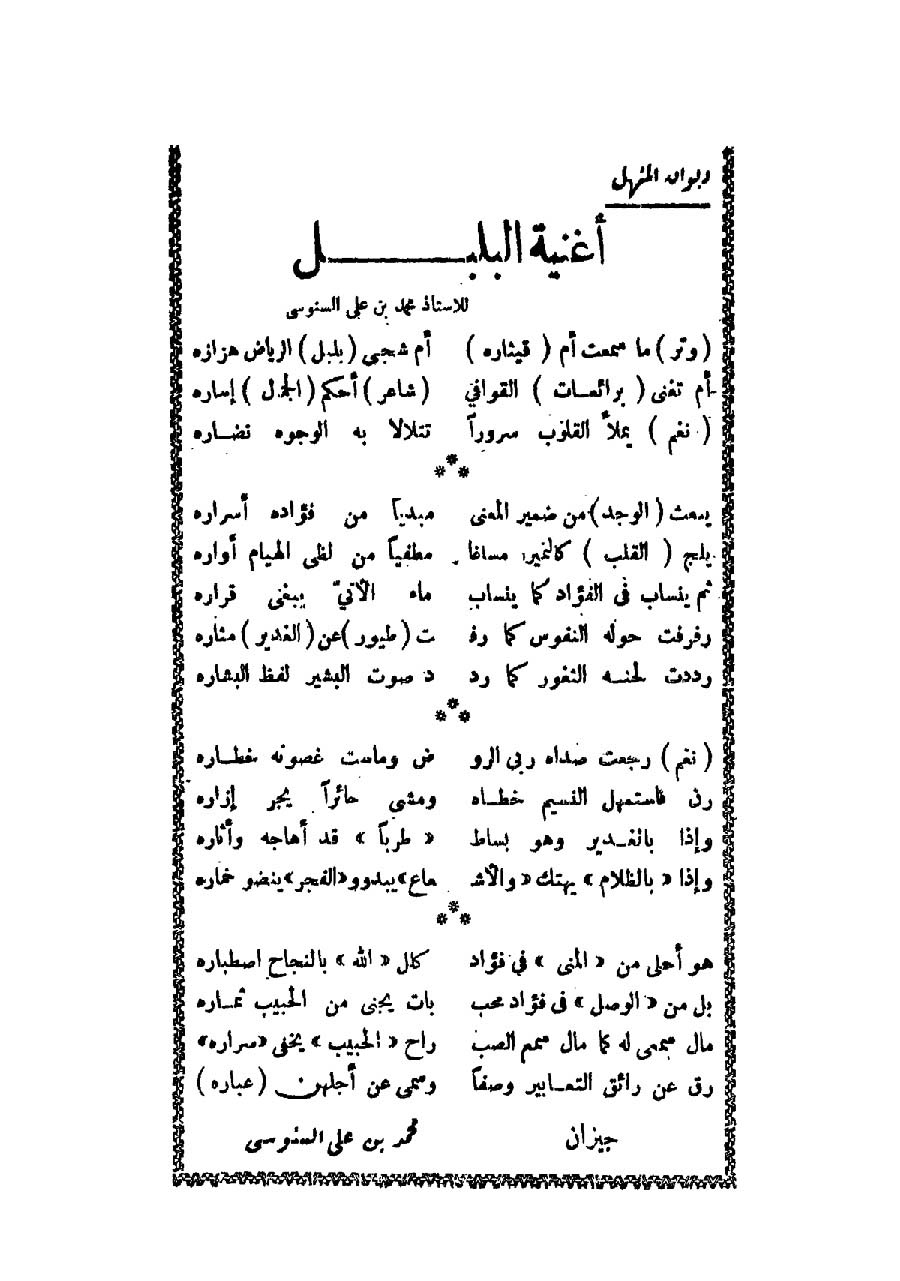 ديوان المنهل
أغنية البلبل
للاستاذ محمد بن علي السنوسى
(وتر) ما سمعت أم (قيثاره) أم شجى (بلبل) الرياض هزازه
أم تغنى (برائعات) القوافي (شاعر) أحكم (الجمال) إساره
(نغم) يملأ القلوب سروراً تتلالا به الوجوه نضاره
***
يبعث (الوجد) من ضمير المعنى مبدياً من فؤاده أسراره
يلج (القلب) كالنمير مساغا مطفياً من لظى الهيام أواره
ثم ينساب فى الفؤاد كما ينساب ماء الأتيّ يبغى قراره
رفرفت حوله النفوس كما رف ت (طيور) عن (الغدير) مثاره
رددت لحنه الثغور كما رد د صوت البشير لفظ البشاره
***
(نغم) رجعت صداه ربى الرو ض وماست غصونه خطاره
رن فاستمهل النسيم خطاه ومشى حائراً يجر إزاره
وإذا بالغدير وهو بساط « طرباً » قد أهاجه وأثاره
وإذا « بالظلام » يهتك « والأش عاع » يبدو و« الفجر » ينضو خماره
***
هو أحلى من « المنى » في فؤاد كلل « الله » بالنجاح اصطباره
بل من « الوصل » فى فؤاد محب بات يجنى من الحبيب ثماره
مال سمعى له كما مال سمع الصب راح « الحبيب » يخفى « سراره »
رق عن رائق التعابير وصفاً وسمى عن أجلهن (عباره)
جيزان محمد بن علي السنوسى